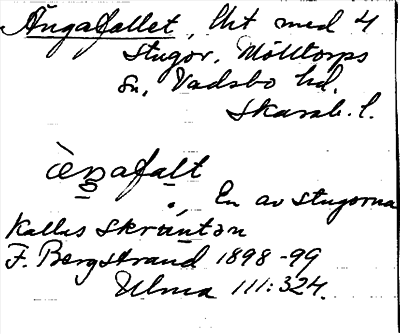 Ängafallet, Ut med 4
stugor, Mölltorps
sn, Vadsbo hd.
Skarab. l.
ὰeṉafa̱lt
En av stugorna
kallas Skräntən
F. Bergstrand 1898-99
Ulma 111:324.